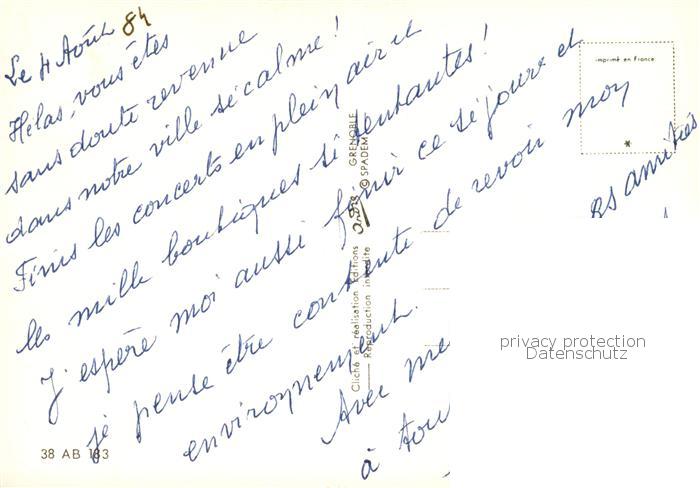 Le 4 Août 84
Hélas, vous êtes
sans doute revenue
dans notre ville si calme !
Finis les concerts en plein air et
les mille boutiques si tentantes !
J'espère moi aussi finir ce séjour et
je pense être contente de revoir mon
environnement.
Avec me es amitiés
à tou
imprimé en France
*
GRENOBLE
© SPADEM
Cliché et réalisation Editions
Reproduction interdite
38 AB 183
privacy protection
Datenschutz